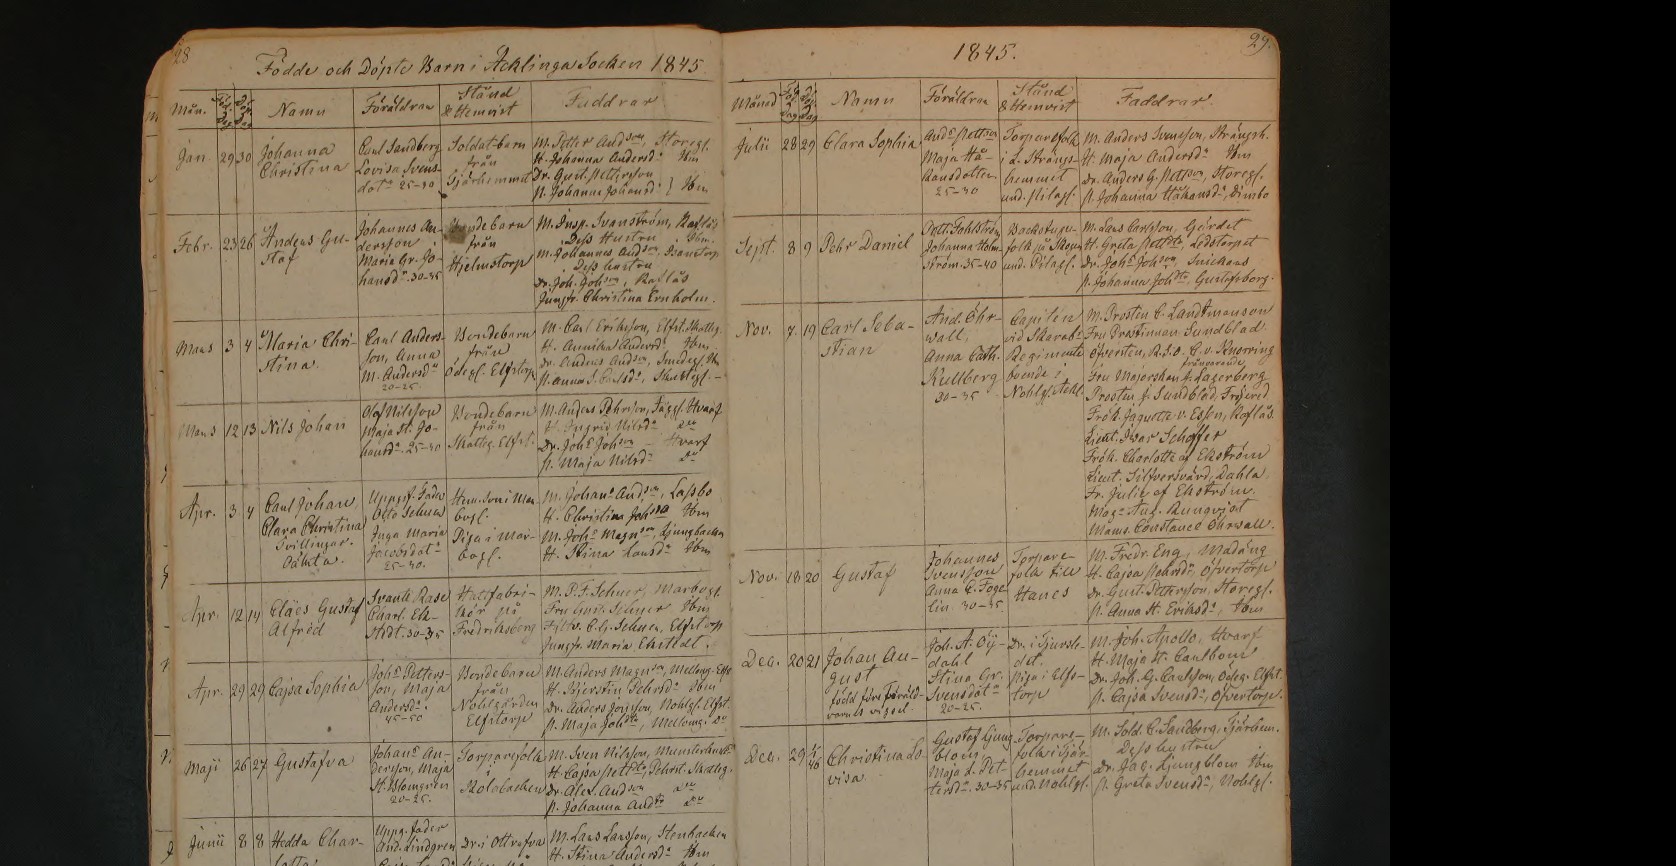 28
Födde och Döpte Barn i Acklinga Socken 1845.
Mån. Namn Föräldrar Stånd & Hemvist Faddrar
Jan. 29 30 Johanna Christina
Carl Sandberg
Lovisa Svens-
dotr 25-30
Soldatbarn
från
Sjärhemmet
M. Petter Andson, Storegl.
H. Johanna Andersdr Ibm
Dr. Gust. Pettersson
P. Johanna Johansdr } Ibm
Febr. 23 26 Anders Gu-
staf
Johannes An-
dersson
Maria Gr. Jo-
hansdr 30-35
Bondebarn
från
Hjelmstorp
M. Insp. Svanström, Roflås
Dess Hustru Ibm
M. Johannes Andson
Dess hustru
Dr. Joh. Johson, Roflås
Jungfr. Christina Ernholm.
Mars 3 4 Maria Chri-
stina
Carl Anders-
son, Anna
M. Andersdr
20-25.
Bondebarn
från
Ödegl. Elfstorp
M. Carl Eriksson, Elfst. Skatteg.
H. Annika Andersdr Ibm
Dr. Anders Andson, Smedegl. Ibm
P. Anna S. Carlsdr, Skattegl.
Mars 12 13 Nils Johan
Olof Nilsson
Maja St. Jo-
hansdr 25-30
Bondebarn
från
Skatteg. Elfst.
M. Anders Pehrsson, Hvarf
H. Ingrid Nilsdr do
Dr. Johs Johson – Hvarf
P. Maja Nilsdr do
Apr. 3 4 Carl Johan
Clara Christina
Tvillingar.
Oäkta.
Uppgf. Fader
Otto Sehner
Inga Maria
Jacobsdotr
25-30.
Hem. Son i Mar-
bogl.
Piga i Mar-
bogl.
M. Johans Andson, Lassbo
H. Christina Johsdr Ibm
M. Johs Magnson, Ljungbacken
H. Stina Larsdr Ibm
Apr. 12 14 Claës Gustaf
Alfred
Svante Rase
Charl. Ek-
stedt. 30-35
Hattfabri-
kör på
Fredriksberg
M. P. F. Sehner, Marbogl.
Fru Gust. Sehner Ibm
C. G. Sehner, Elfstorp
Jungfr. Maria Ekstedt.
Apr. 29 29 Cajsa Sophia
Johs Petters-
son, Maja
Andersdr
45-50
Bondebarn
från
Nohlgården
Elfstorp
M. Anders Magnson, Mellomg. Elfst.
H. Kjerstin Pehrsdr Ibm
Dr. Anders Jonsson, Nohlgl. Elfst.
P. Maja Johdtr, Mellomg. do
Maji 26 27 Gustafva
Johans An-
dersson, Maja
St. Blomgren
20-25.
Torparefolk
i
Kolobacken
M. Sven Nilsson
H. Cajsa Pettdtr, Skatteg.
Dr. Alex. Andson do
P. Johanna Anddtr do
Junii 8 8 Hedda Char-
lotta
Uppg. fader
And. Lindgren
Dr. i Ottrafva
M. Lars Larsson, Stenbacken
H. Stina Andersdr Ibm
29.
1845.
Månad Namn Föräldrar Stånd & Hemvist Faddrar.
Julii 28 29 Clara Sophia
Ands Pettson
Maja Hå-
kansdotter
25-30
Torparefolk
i L. Strängs-
hemmet
und. Pilagl.
M. Anders Svensson, Strängsh.
H. Maja Andersdr Ibm
Dr. Anders G. Pettson, Storegl.
P. Johanna Håkansdr, Dimbo
Sept. 8 9 Pehr Daniel
Pett. Dahlström
Johanna Holm-
ström. 35-40
Backstugu-
folk på Skogen
und. Pilagl.
M. Lars Carlsson, Gärdet
H. Greta Pettdtr, Ledstorpet
Dr. Johs Johson, Snickars
P. Johanna Johdtr, Gustafsborg.
Nov. 7 19 Carl Seba-
stian
And. Öhr-
wall,
Anna Cath.
Kullberg
30-35
Capiten
vid Skarab:
Regimente
boende i
Nohlgl. Ackl.
M. Prosten C. Landtmanson
Fru Prostinnan Sundblad
Öfversten, R.S.O. C. v. Knorring
frånvarande
Fru Majorskan A. Lagerberg
Prosten J. Sundblad, Fröjered
Frök. Jaquette v. Essen, Roflås.
Lieut. Ivar Schöffer
Frök. Charlotte af Ekström
Lieut. Silfversvärd, Dahla
Fr. Julie af Ekström
Mag. Aug. Runqvist
Mams. Constance Öhrwall.
Nov. 18 20 Gustaf
Johannes
Svensson
Anna C. Foge-
lin. 30-35
Torpare-
folk till
Hanes
M. Fredr. Eng, Madäng
H. Cajsa Pehrsdr, Öfvertorp
Dr. Gust. Pettersson, Storegl.
P. Anna St. Eriksdr, Ibm
Dec. 20 21 Johan Au-
gust
född före Föräld-
rarnes vigsel.
Joh. A. Öj-
dahl
Stina Gr.
Svensdotr
20-25.
Dr. i Tjurshl-
det.
Piga i Elfs-
torp
M. Joh. Apollo, Hvarf
H. Maja St. Carlbom
Dr. Joh. G. Carlsson, Ödeg. Elfst.
P. Cajsa Svensdr, Öfvertorp.
Dec. 29 1/1 46 Christina Lo-
visa.
Gustaf Ljung-
blom
Maja L. Pet-
tersdr. 30-35
Torpare-
folk i Sjär-
hemmet
und. Nohlgl.
M. Sold. C. Sandberg, Sjärhem.
Dess hustru
Dr. Jac. Ljungblom Ibm
P. Greta Svensdr, Nohlgl.